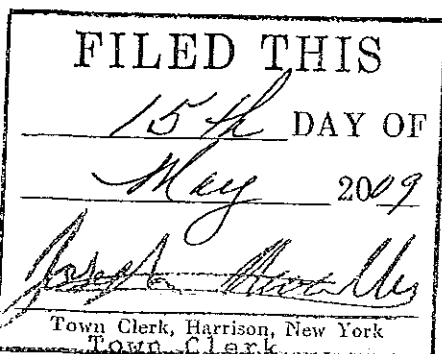 FILED THIS
15th DAY OF
May 2009
Joseph
Town Clerk, Harrison, New York
Town Clerk